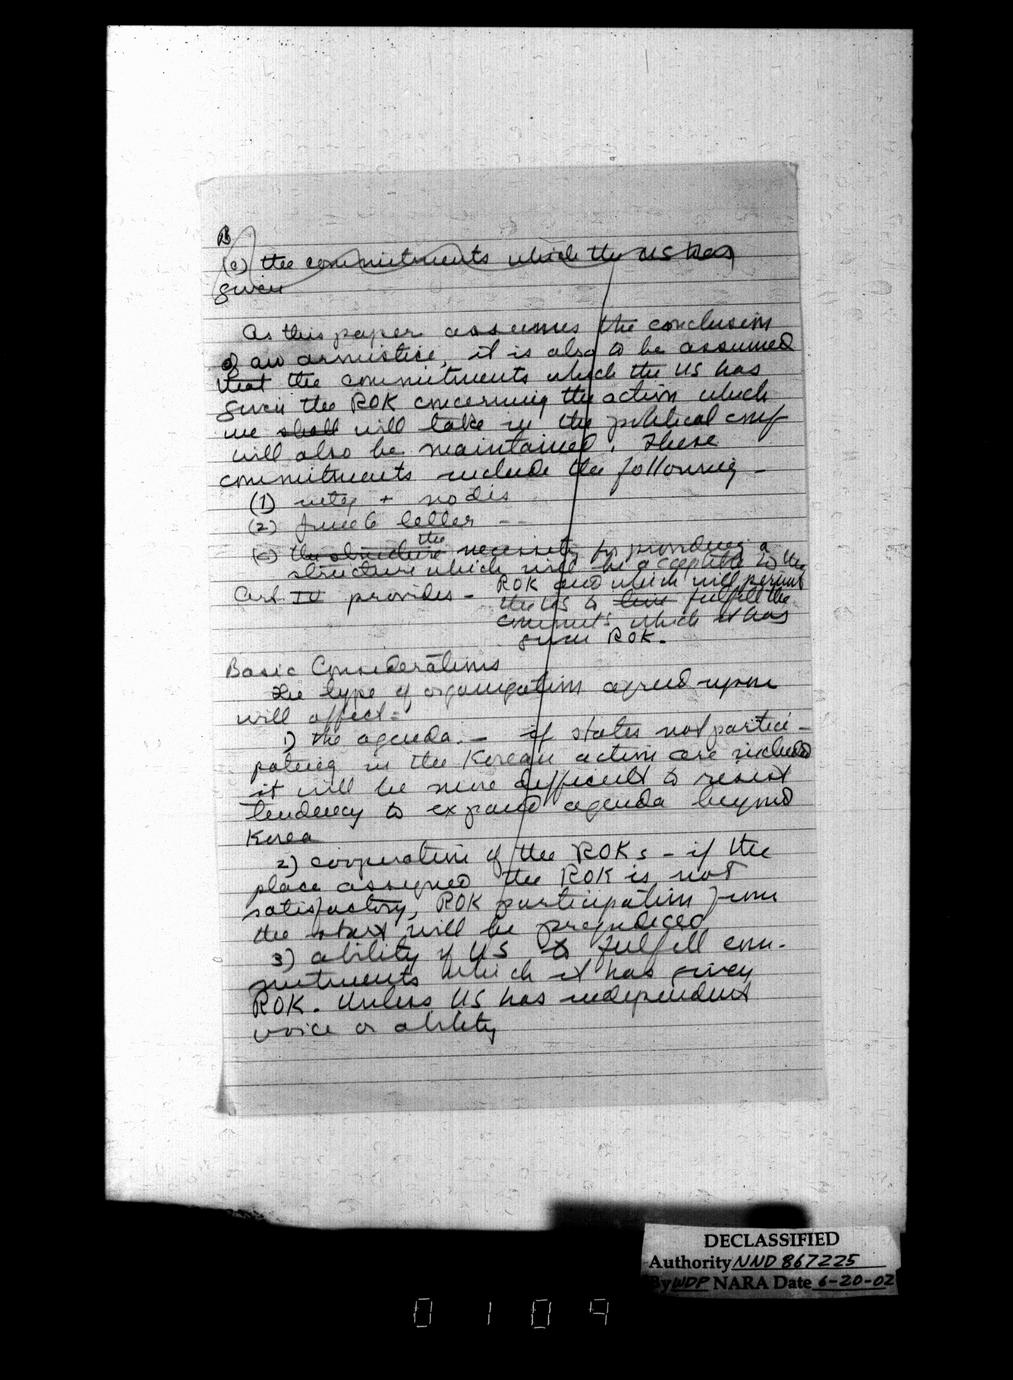 B
(c) the commitments which the US has
given
As this paper assumes the conclusion
of an armistice, it is also to be assumed
that the commitments which the US has
given the ROK concerning the action which
we shall will take in the political conf
will also be maintained. These
commitments include the following –
(1) +
(2) June 6 letter --
the
(c) the structure necessity for providing a
structure which will be acceptable to the
ROK and which will permit
Art. IV provides –
the US to fulfill the
commits which it has
given ROK.
Basic Considerations
The type of organization agreed upon
will affect:
1) the agenda. – if states not partici-
pating in the Korean action are included
it will be more difficult to resist
tendency to expand agenda beyond
Korea
2) cooperation of the ROKs – if the
place assigned the ROK is not
satisfactory, ROK participation from
the start will be prejudiced
3) ability of US to fulfill com-
mitments which it has given
ROK. Unless US has independent
voice or ability
DECLASSIFIED
Authority NND 867225
By WDP NARA Date 6-20-02
0109